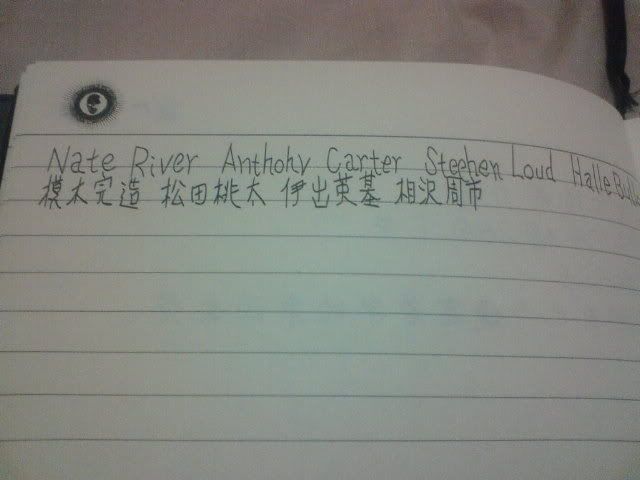 Nate River Anthohy Carter Stephen Loud Halle
模木完造 松田桃太 伊出英基 相沢周市